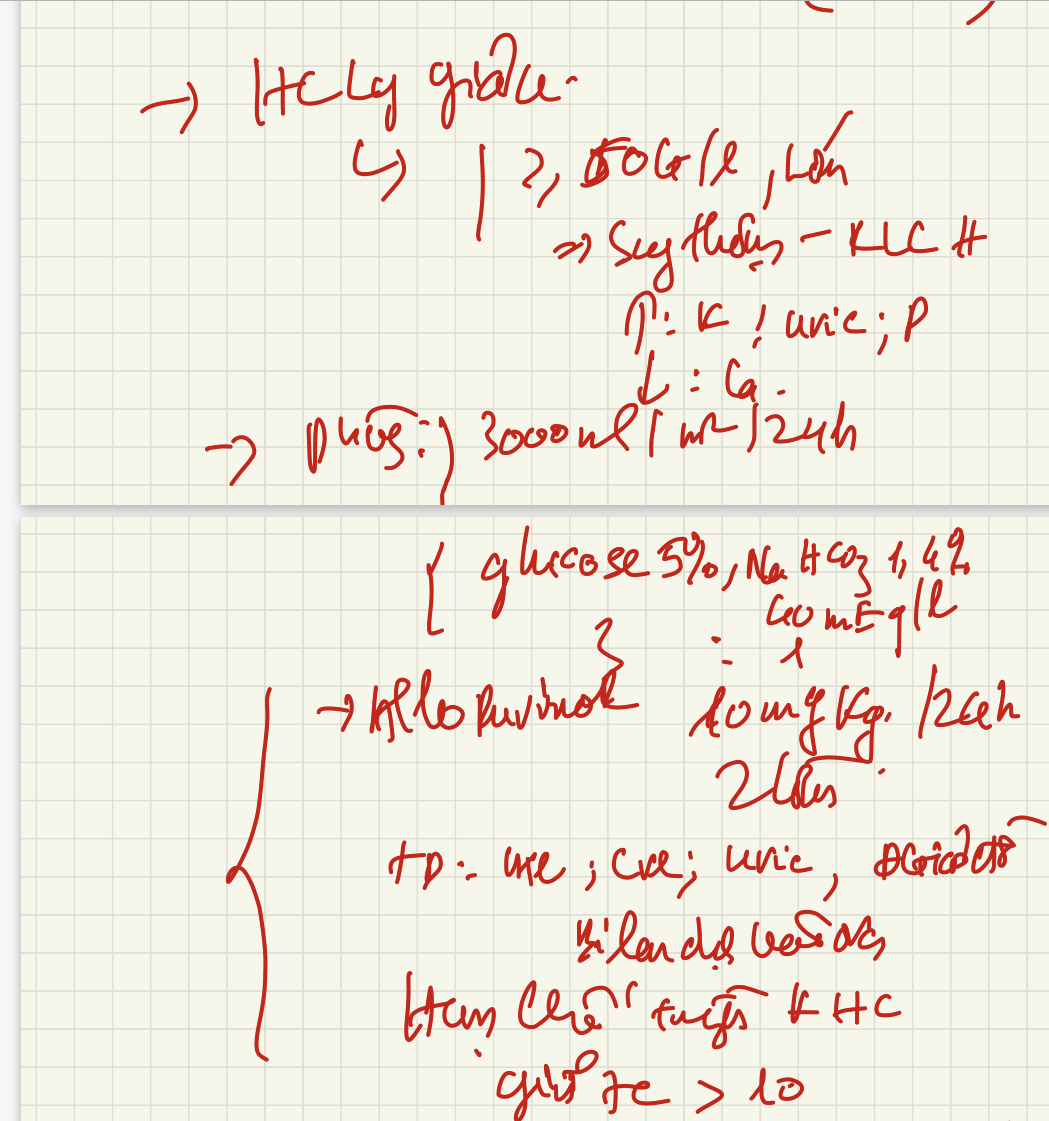 → HC Ly giải
↳ | ≥ 50G/l, Lớn
⇒ Suy thận - KLC #
↑: K; uric; P
↓: Ca.
→ Phòng: 3000ml/m²/24h
glucose 5%, NaHCO3 1,4%
40mEq/l
→ Allopurinol 10mg/kg/24h
2 lần.
TD: ure; cre; uric, điện giải đồ
Hạn chế truyền KHC
giữ TC > 10